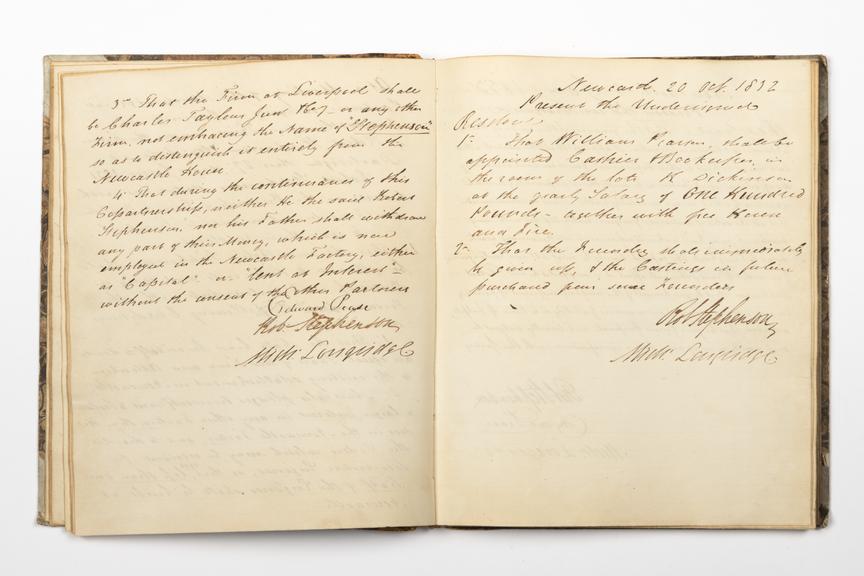 3rd That the Firm at Liverpool shall
be Charles Tayleur Junr & Co - or any other
Firm, not embracing the Name of "Stephenson"
so as to distinguish it entirely from the
Newcastle House
4 That during the continuance of this
Copartnership, neither He the said Robert
Stephenson, nor his Father shall withdraw
any part of their Money, which is now
employed in the Newcastle Factory, either
as "Capital" or "lent at Interest" -
without the consent of the other Partners
Edward Pease
Rob. Stephenson
Mich. Longridge
Newcastle 20 Oct. 1832
Present the Undersigned
Resolved
1st That William shall be
appointed Cashier & Bookeeper, in
the room of the late R Dickinson
at the yearly Salary of One Hundred
Pounds - together with free House
and Fire.
2 That the Foundry shall immediately
be given up, & the Castings in future
purchased from some Founders
Rob Stephenson
Mich. Longridge